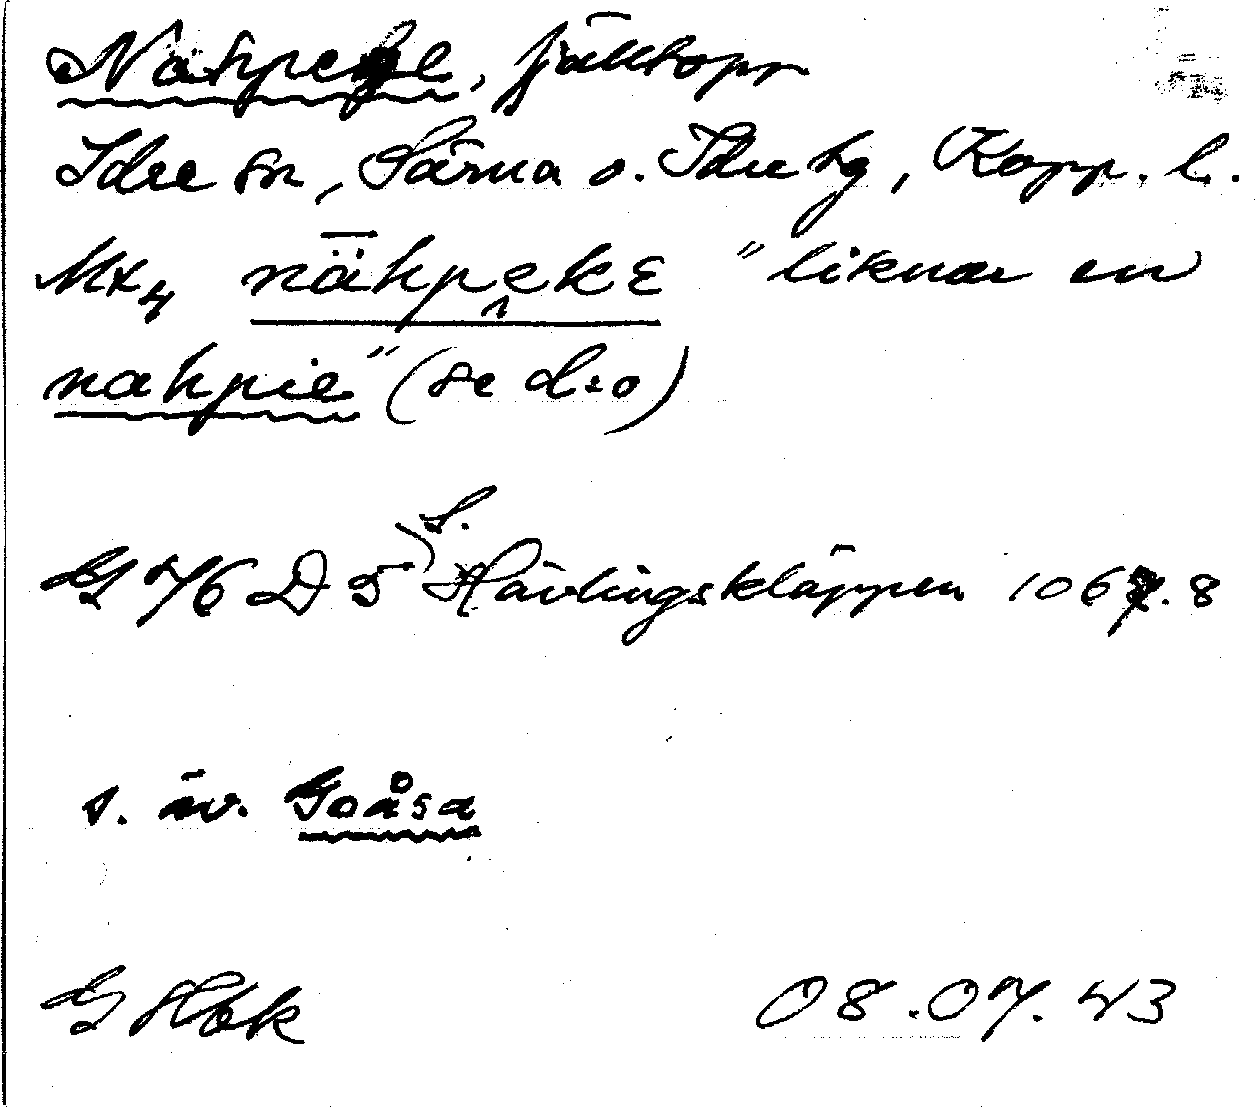 Nähpege, fjälltopp
Idre sn, Särna o. Idre tg, Kopp. l.
Mx4 nähpekɛ "liknar en
nahpie" (se d:o)
S.
G 7/6 D 5 Hävlingskläppen 1067.8
s. äv. Goåsa
G Hbk 08.07.43